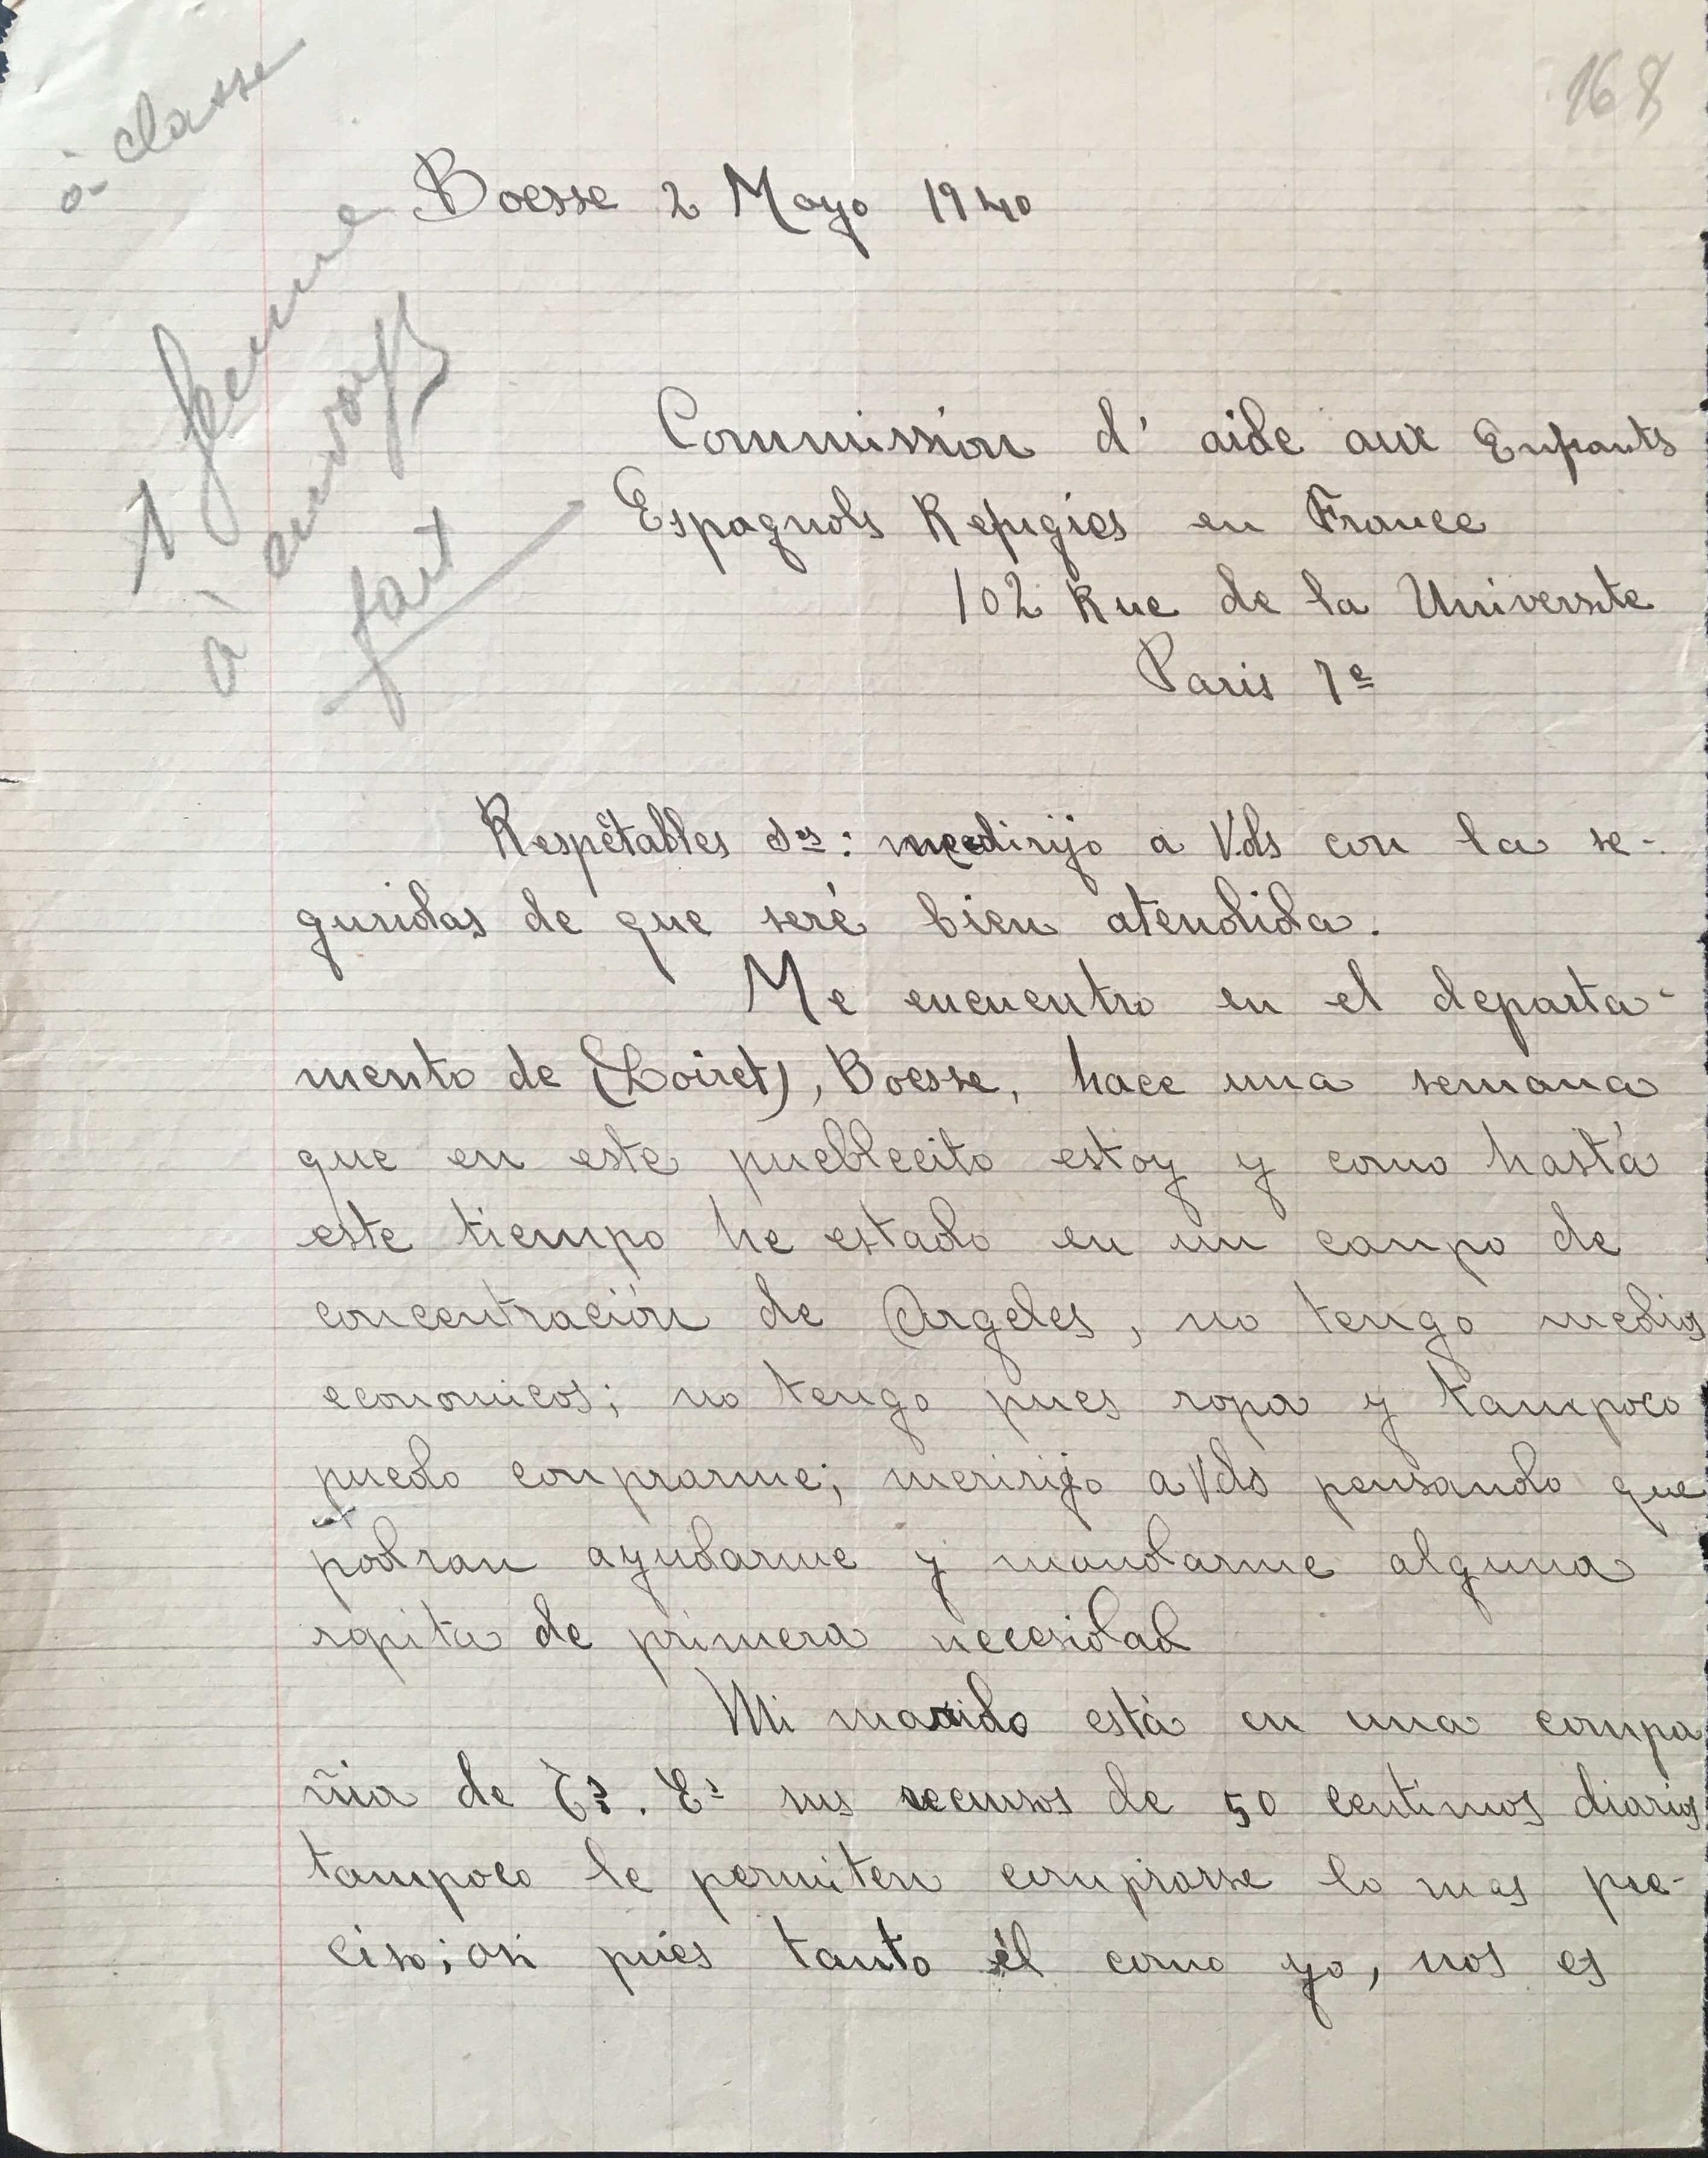 à classe
168
Boesse 2 Mayo 1940
1 femme
à envoyer
fait
Commissión d' aide aux Enfants
Espagnols Refugies en France
102 Rue de la Universite
Paris 7e
Respétables Srs: me dirijo a Vds con la se-
guridas de que seré bien atendida.
Me encuentro en el departa-
mento de (Loiret), Boesse, hace una semana
que en este pueblecito estoy y como hastá
este tiempo he estado en un campo de
concentración de Argeles, no tengo medios
economicos; no tengo pues ropa y tampoco
puedo conprarme; meririjo a Vds pensando que
podran ayudarme y mandarme alguna
ropita de primera necesidad
Mi marido está en una compa
ñia de Ts. Es sus recursos de 50 centimos diarios
tampoco le permiten comprarse lo mas pre-
ciso; asi pues tanto él como yo, nos es